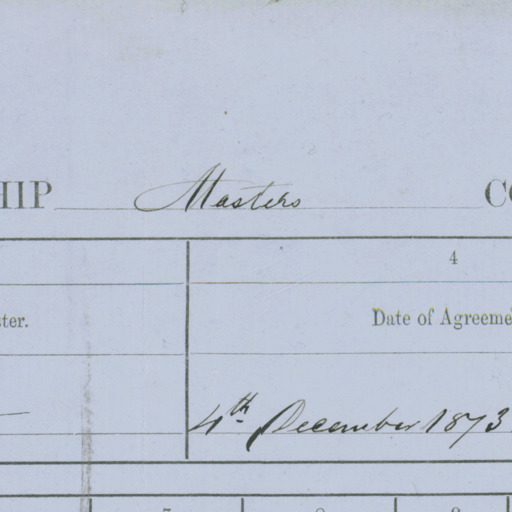 HIP Masters CO
4
ster. Date of Agreeme
4th December 1873
7 8 9